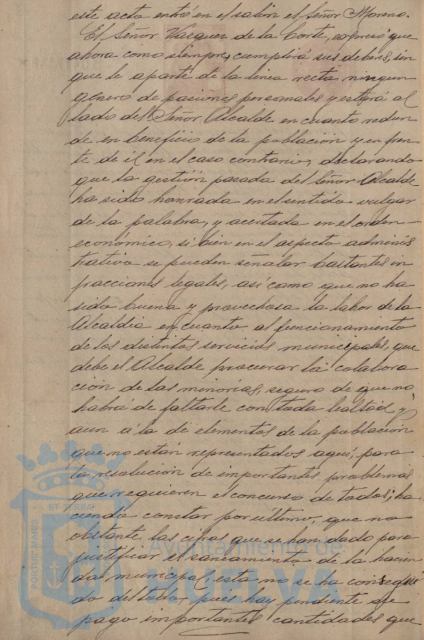 este acto entró en el salón el Señor Moreno.
El Señor Vazquez de la Corte, expresó que
ahora como siempre, cumplirá sus deberes, sin
que le aparte de la linea recta ningun
género de pasiones personales y estará al
lado del Señor Alcalde en cuanto redun-
de en beneficio de la población y en fren-
te de él en el caso contrario, declarando
que la gestión pasada del Señor Alcalde
ha sido honrada en el sentido vulgar
de la palabra, y acertada en el orden
económico, si bien en el aspecto adminis-
trativo se pueden señalar bastantes in-
fracciones legales, así como que no ha
sido buena y provechosa la labor de la
Alcaldia en cuanto al funcionamiento
de los distintos servicios municipales, que
debe el Alcalde procurar la colabora-
ción de las minorias, seguro de que no
habrá de faltarle con toda lealtad y
aun á la de elementos de la población
que no están representados aquí, para
la resolución de importantes problemas
que requieren el concurso de todos; ha-
ciendo constar por último, que no
obstante las cifras que se han dado para
justificar el saneamiento de la hacien-
da municipal, esta no se ha consegui-
do del todo pués hay pendiente de
pago importantes cantidades que
PORTUS MARIS
ET TERRAE
Ayuntamiento de
HUELVA